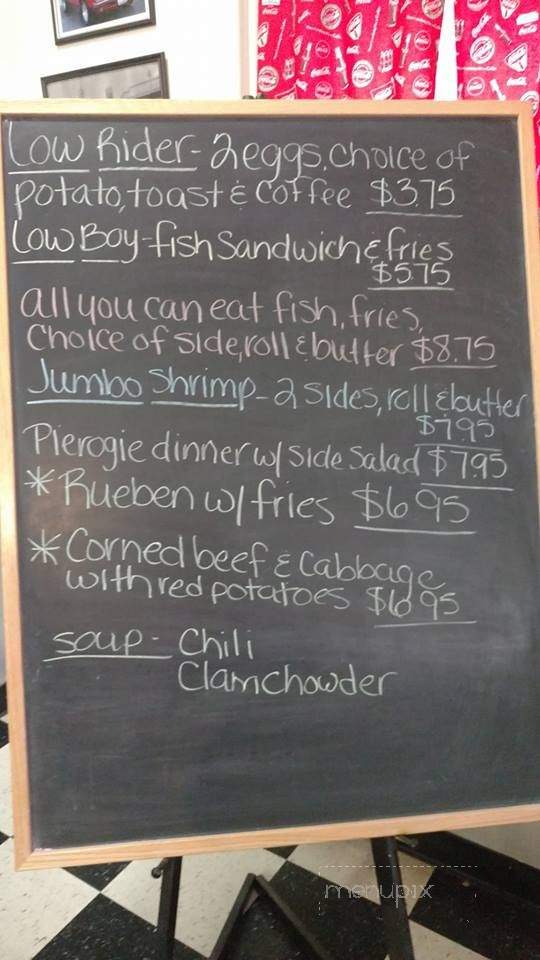 Low Rider- 2 eggs, choice of
potato, toast & coffee $3.75
Low Boy-fish Sandwich & fries
$5.75
all you can eat fish, fries,
Choice of side, roll & butter $8.75
Jumbo Shrimp- 2 sides, roll & butter
$7.95
Pierogie dinner w/ side salad $7.95
* Rueben w/ fries $6.95
* Corned beef & Cabbage
with red potatoes $6.95
soup- Chili
Clamchowder
menupix